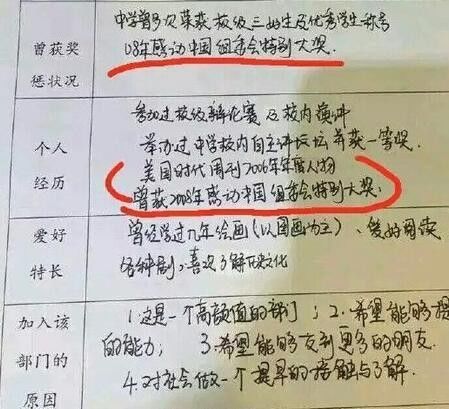 曾获奖
惩状况
中学曾多次荣获校级三好生及优秀学生称号
08年感动中国组委会特别大奖.
个人
经历
参加过校级辩论赛及校内演讲
举办过中学校内自主讲坛并获一等奖.
美国时代周刊2006年年度人物
曾获2008年感动中国组委会特别大奖.
爱好
特长
曾经学过几年绘画(以国画为主)、爱好阅读
各种剧、喜欢了解历史文化
加入该
部门的
原因
1.这是一个高颜值的部门;2.希望能够提
的能力; 3.希望能够交到更多的朋友.
4.对社会做一个提早的接触与了解.